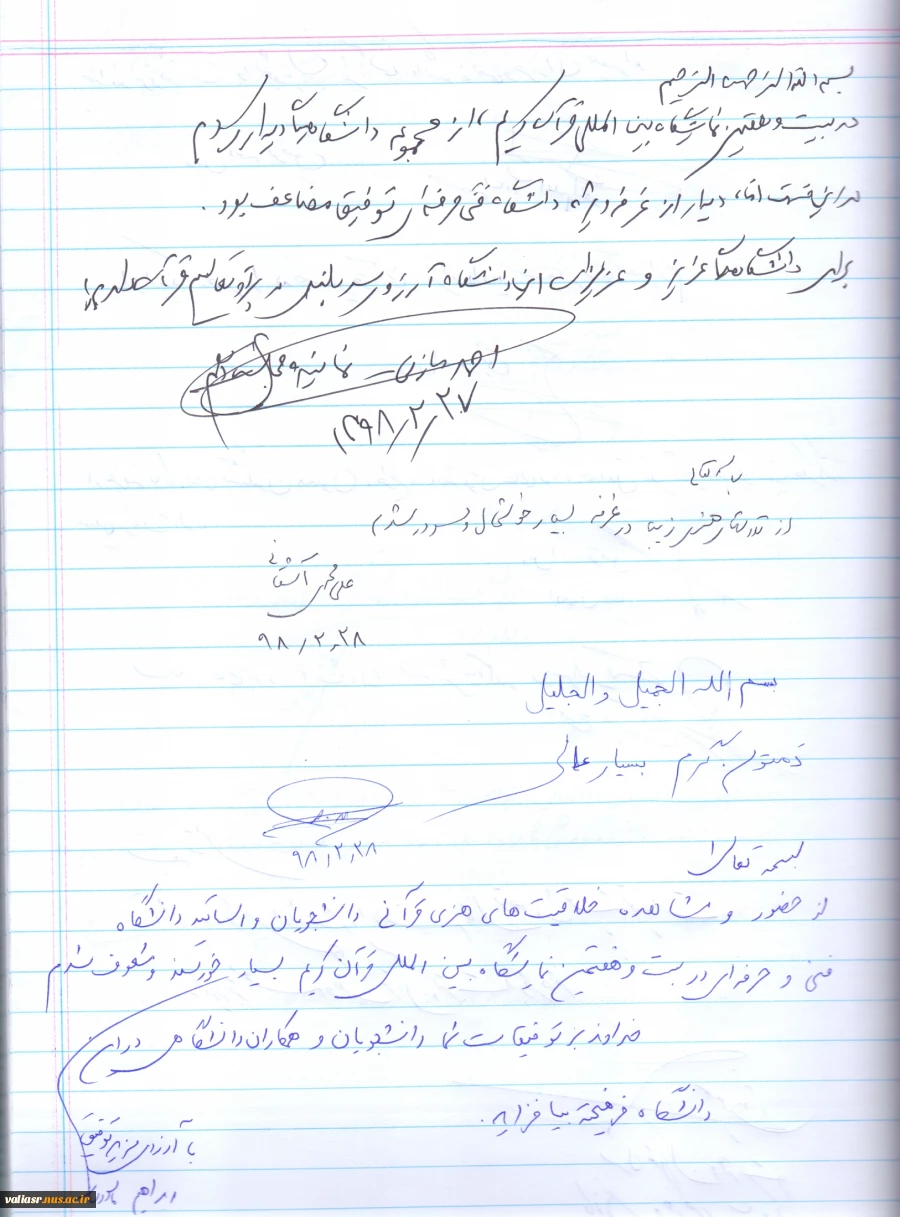 بسم الله الرحمن الرحیم
در بیست و هفتمین نمایشگاه بین المللی قرآن کریم، از مجموعه دانشگاه‌ها دیدار کردم
در این قسمت دیدار از غرفه دانشگاه فنی حرفه‌ای توفیق مضاعف بود.
برای دانشگاه عزیز و عزیزان این دانشگاه آرزوی سربلندی در پرتو تعالیم قرآن
احمد مازنی نماینده
۱۳۹۸/۲/۲۷
بسمه تعالی
از هنری زیبا در غرفه بسیار خوشحال و مسرور شدم
علی
۹۸/۲/۲۸
بسم الله الجمیل و الجلیل
بسیار عالی
۹۸/۲/۲۸
بسمه تعالی
از حضور و مشاهده خلاقیت‌های هنری قرآنی دانشجویان و اساتید دانشگاه
فنی و حرفه‌ای در بیست و هفتمین نمایشگاه بین المللی قرآن کریم بسیار خرسند و مشعوف شدم
خداوند بر توفیقات شما دانشجویان و همکاران دانشگاهی در این
دانشگاه فرهیخته بیافزاید.
با آرزوی مزید توفیق
ابراهیم
valiasr.nus.ac.ir